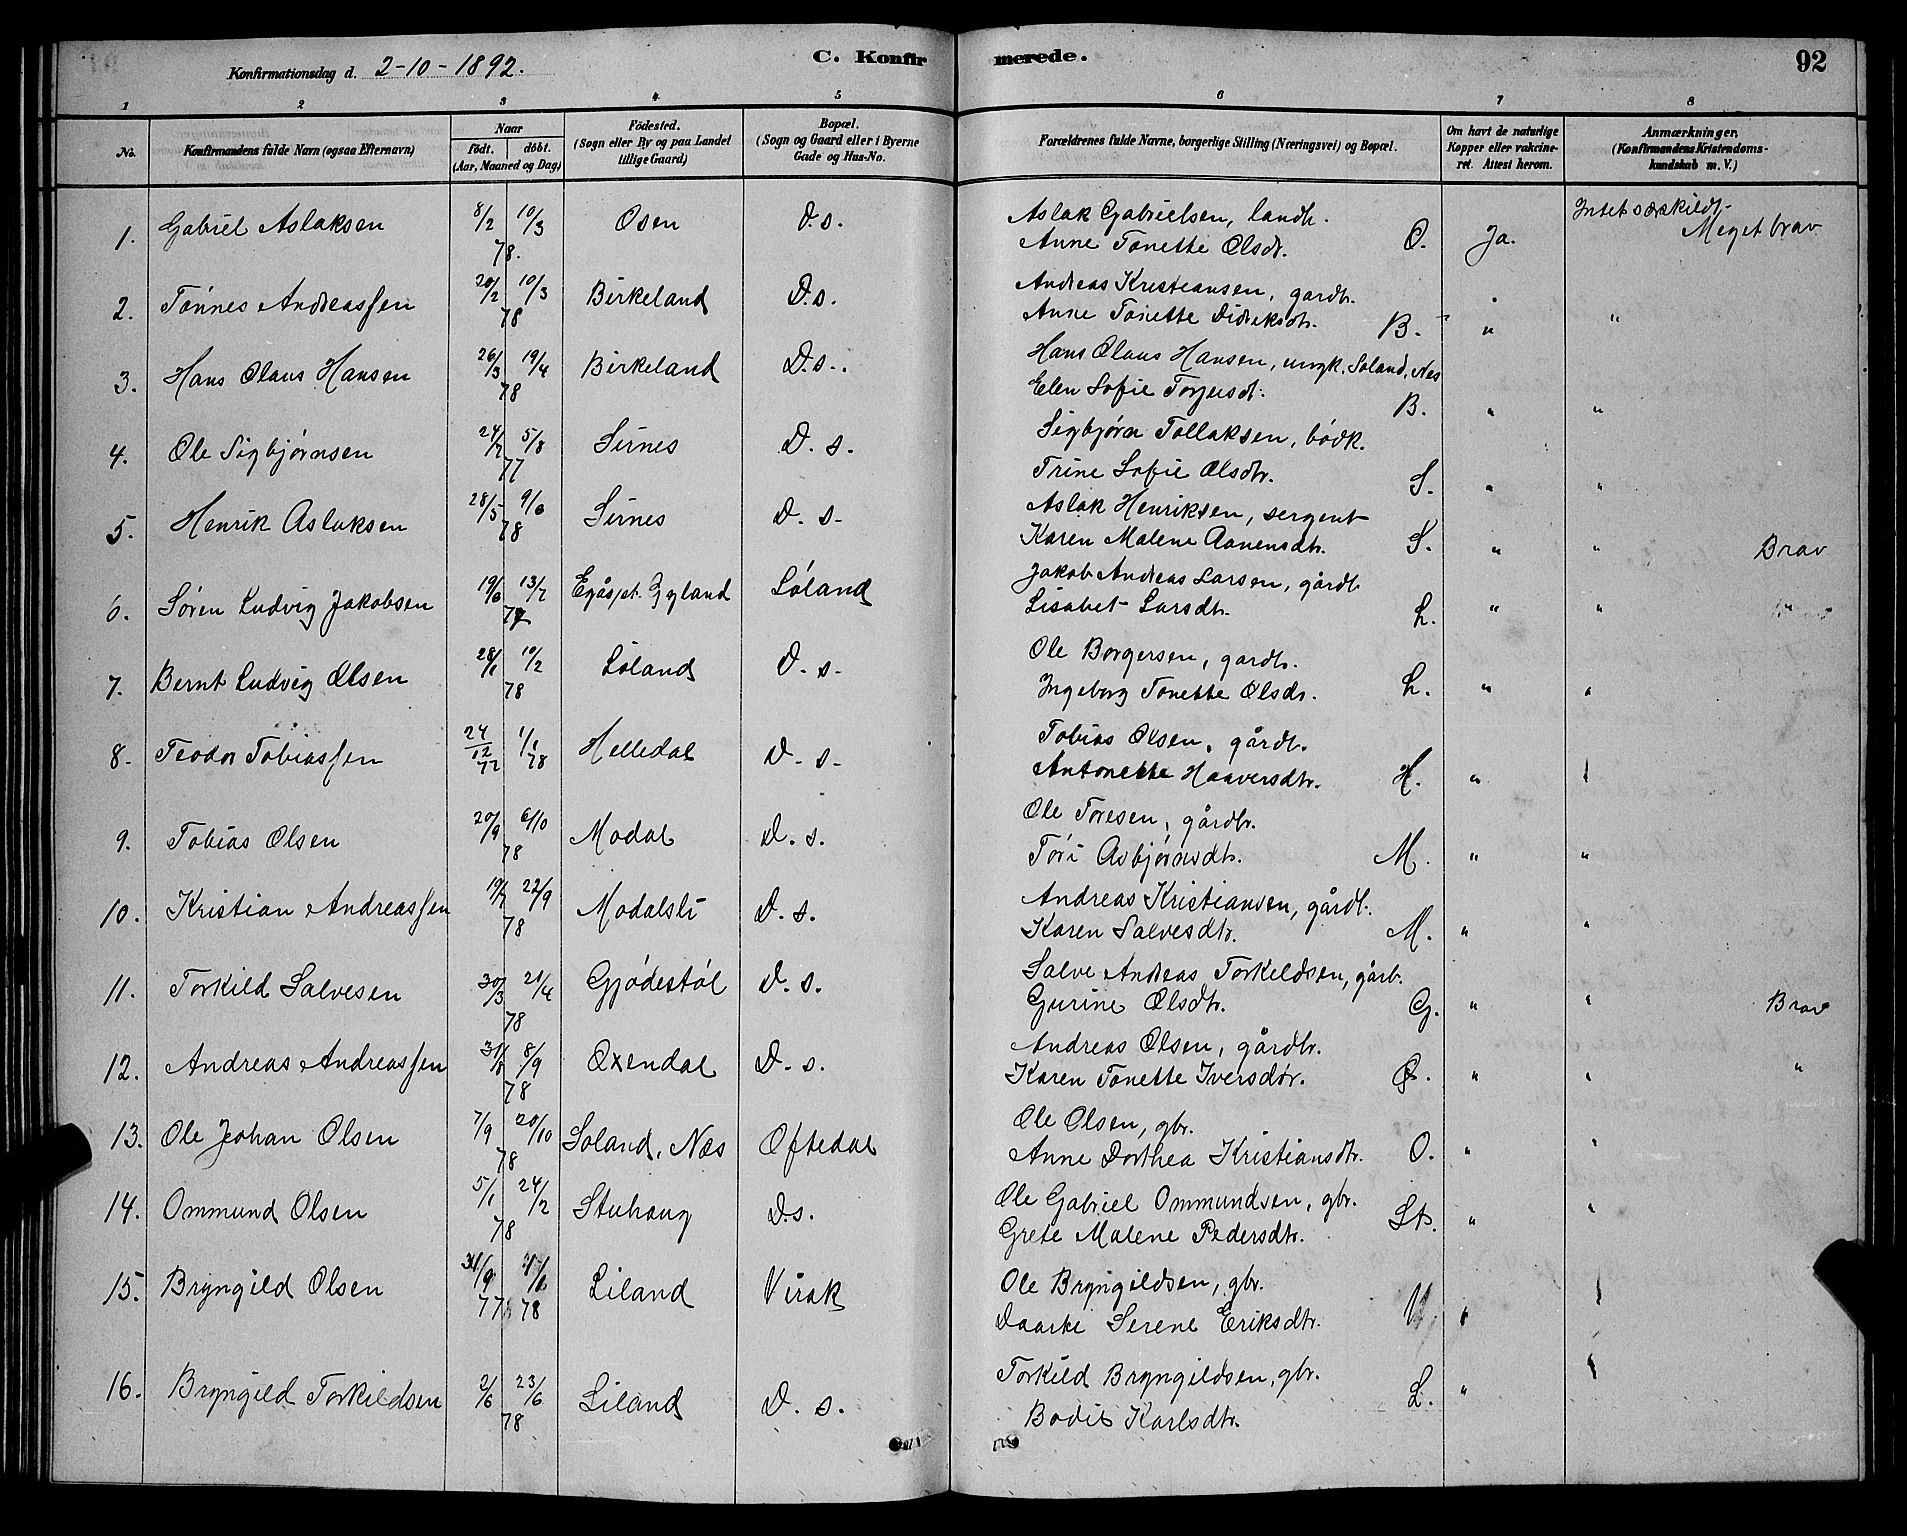 Konfirmationsdag d. 2-10-1892.
C. Konfirmerede.
92
1 2 3 4 5 6 7 8
No.
Konfirmandens fulde Navn (ogsaa Efternavn)
Naar
Født. døbt.
(Aar, Maaned og Dag)
Fødested.
(Sogn eller By og paa Landet
tillige Gaard)
Bopæl.
(Sogn og Gaard eller i Byerne
Gade og Hus-No.
Forældrenes fulde Navne, borgerlige Stilling (Næringsvei) og Bopæl.
Om havt de naturlige
Kopper eller vakcine-
ret. Attest herom.
Anmærkninger,
(Konfirmandens Kristendoms-
kundskab m. V.)
1. Gabriel Aslaksen 8/2 10/3 78. Osen D.s. Aslak Gabrielsen, landh.
Anne Tonette Olsdr. O. Ja. Intet særskildt.
Meget brav
2. Tønnes Andreassen 20/2 10/3 78 Birkeland D.s. Andreas Kristiansen, gardb.
Anne Tonette Didriksdtr. B. " "
3. Hans Olaus Hansen 26/3 19/4 78 Birkeland D.s. Hans Olaus Hansen, ungk. Soland, Nes
Elen Sofie Torjusdt. B. " "
4. Ole Sigbjørnsen 24/7 5/8 77 Sirnes D. s. Sigbjørn Tollaksen, bødk.
Trine Sofie Olsdtr. S. " "
5. Henrik Aslaksen 28/5 9/6 78 Sirnes D. s. Aslak Henriksen, sergent
Karen Malene Aanensdtr. S. " " Brav
6. Søren Ludvig Jakobsen 19/6 13/7 Gyland Løland Jakob Andreas Larsen, gårdb
Lisabet Larsdtr. L. " "
7. Bernt Ludvig Olsen 28/1 10/2 78 Løland D. s. Ole Borgersen, gardb.
Ingeborg Tonette Olsdr. L. " "
8. Teodor Tobiassen 24/12 77 1/1 78 Helledal D. s. Tobias Olsen, gårdb.
Antonette Haaversdtr. H. " "
9. Tobias Olsen 20/9 6/10 78 Modal D. s. Ole Toresen, gårdbr.
Tori Asbjørnsdtr. M. " "
10. Kristian Andreassen 22/9 78 Modalsli D. s. Andreas Kristiansen, gårdb.
Karen Salvesdtr. M. " "
11. Torkild Salvesen 30/3 21/4 78 Gjødestøl D. s. Salve Andreas Torkeldsen, gårb.
Gurine Olsdtr. G. " " Brav
12. Andreas Andreassen 31/8 8/9 78 Oxendal D. s. Andreas Olsen, gårdbr.
Karen Tonette Iversdtr. O. " " "
13. Ole Johan Olsen 7/9 20/10 78 Soland, Næs Oftedal Ole Olsen, gbr.
Anne Dorthea Kristiansdtr. O. " "
14. Ommund Olsen 5/1 24/2 78 Stuhaug D.s. Ole Gabriel Ommundsen, gbr.
Grete Malene Pedersdtr. St. " "
15. Bryngild Olsen 77 78 Liland Virak Ole Bryngildsen, gbr.
Daarte Serene Eriksdtr. V " "
16. Bryngild Torkildsen 2/6 23/6 78 Liland D. s. Torkild Bryngildsen, gbr.
Bodil Karlsdtr. L. " "